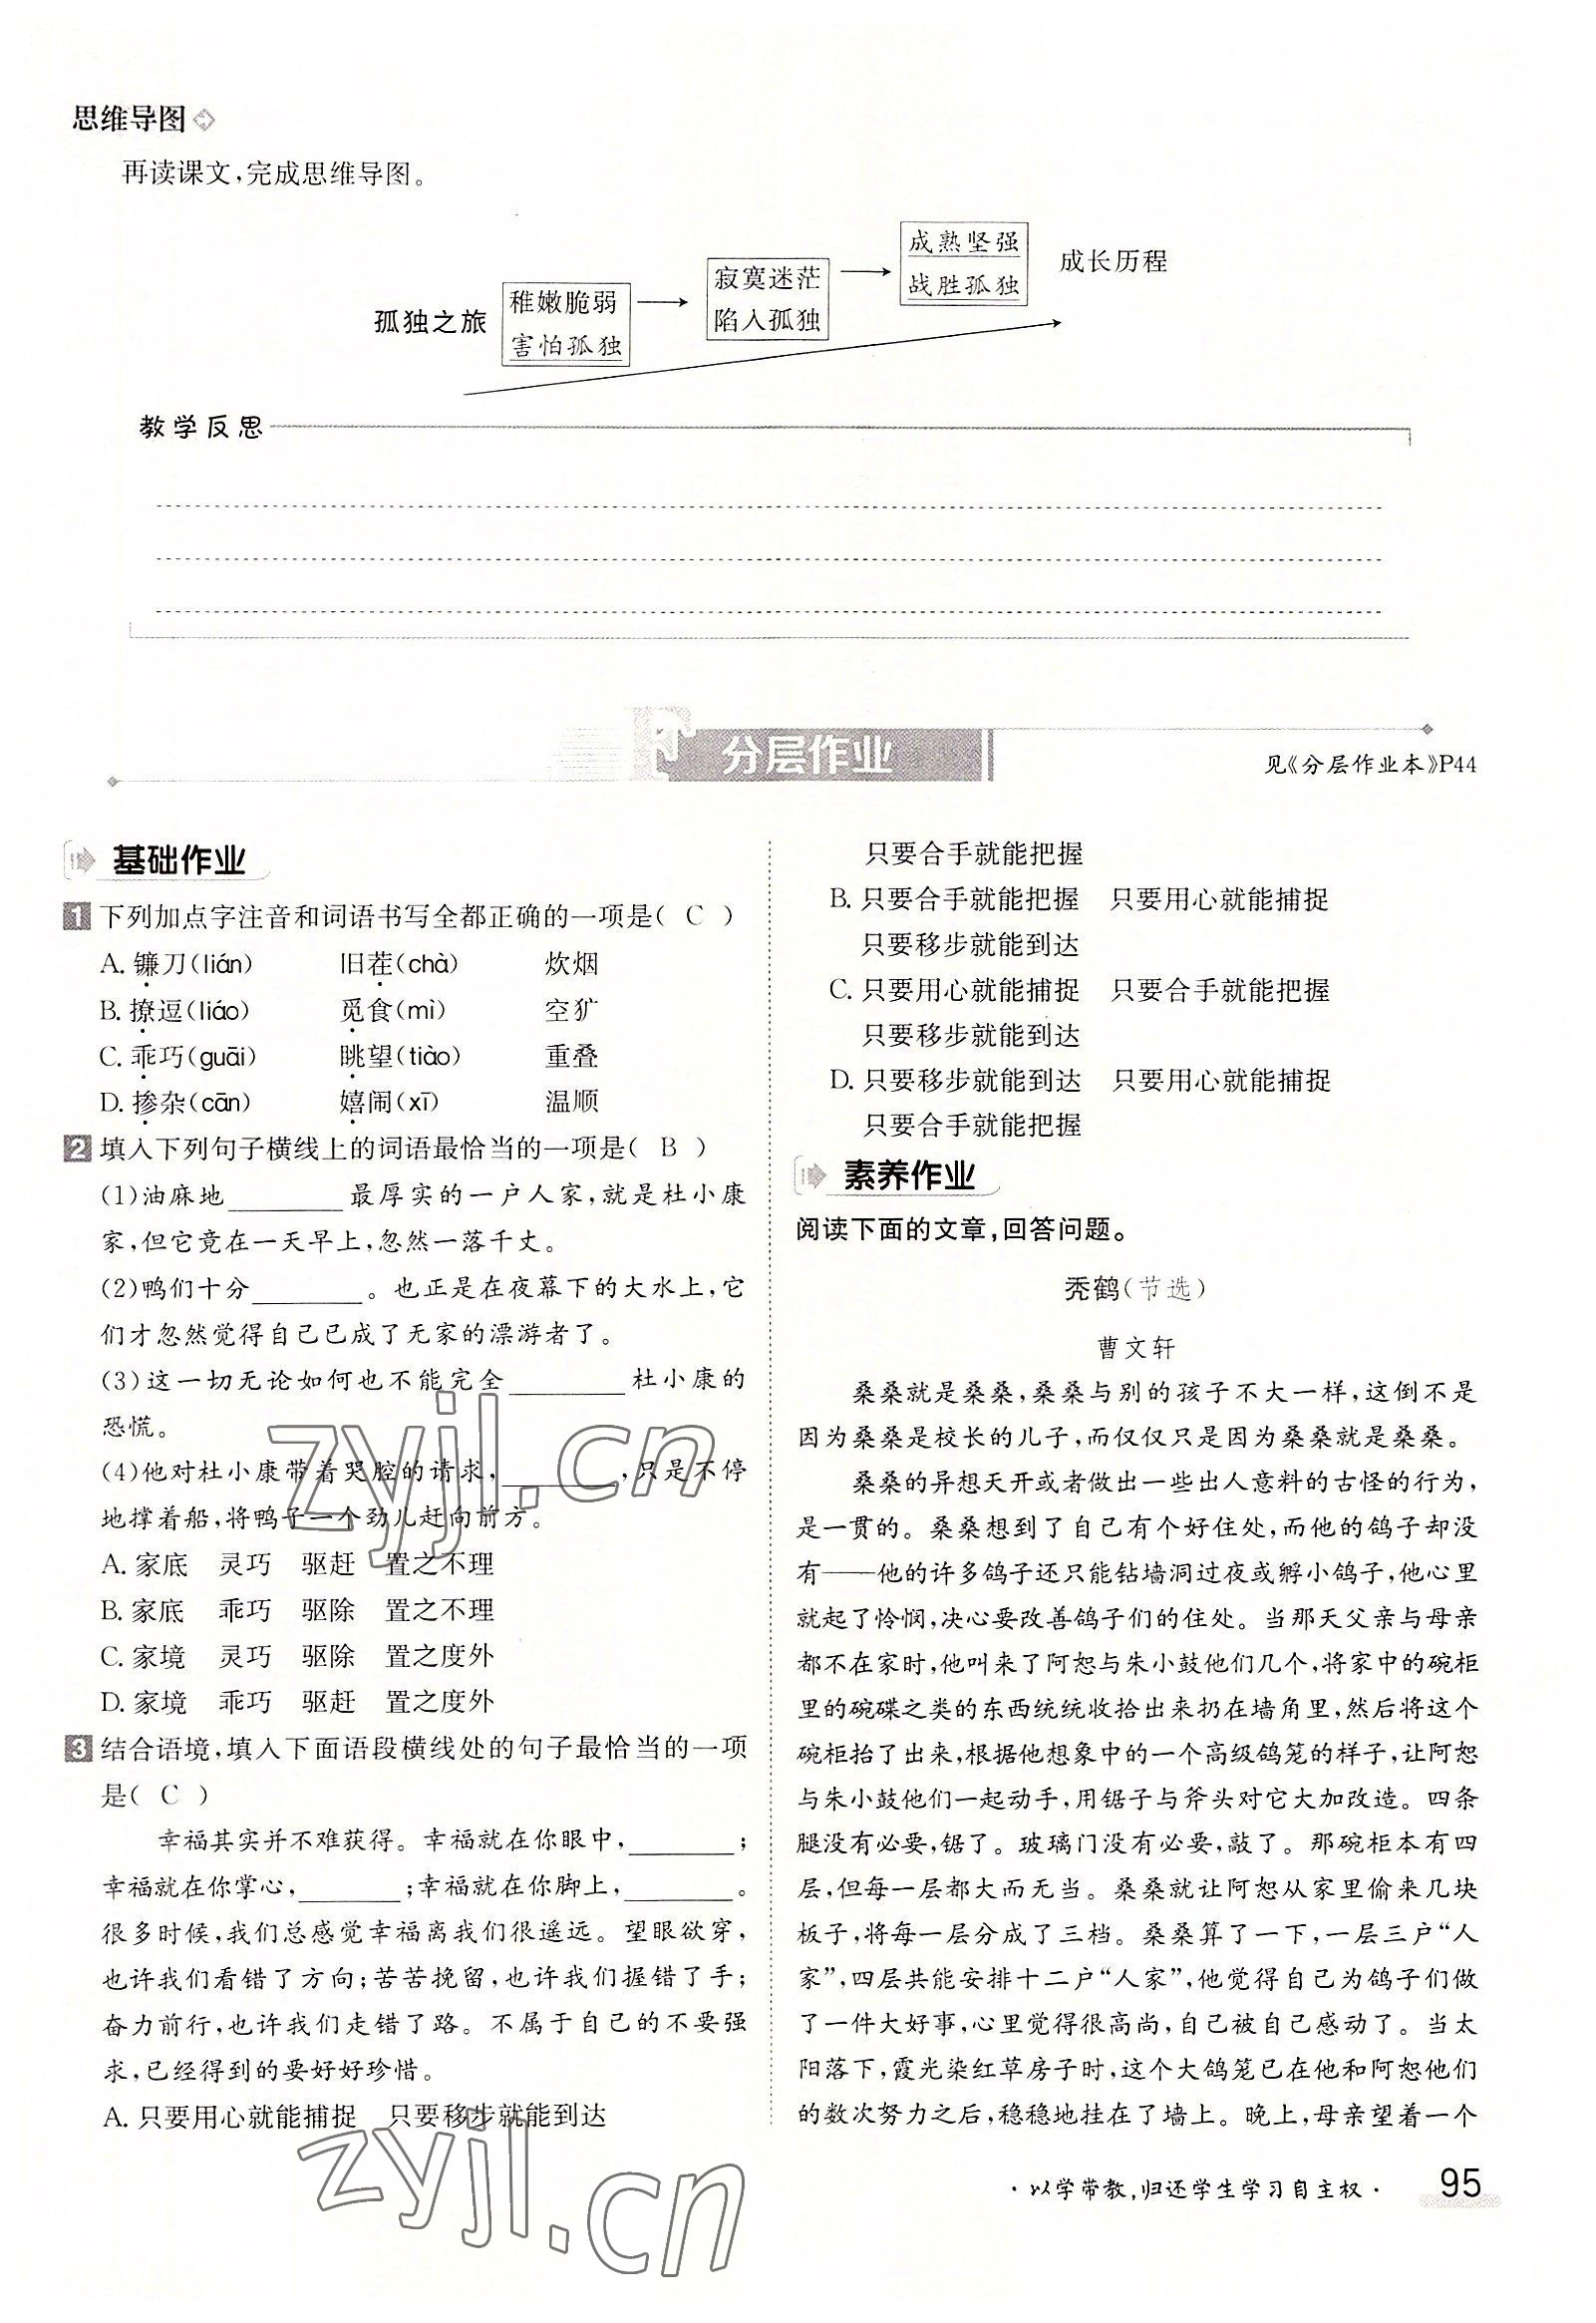 思维导图
再读课文,完成思维导图。
孤独之旅
稚嫩脆弱
害怕孤独
寂寞迷茫
陷入孤独
成熟坚强
战胜孤独
成长历程
教学反思
分层作业
见《分层作业本》P44
基础作业
1 下列加点字注音和词语书写全都正确的一项是( C )
A. 镰刀(lián) 旧茬(chà) 炊烟
B. 撩逗(liáo) 觅食(mì) 空犷
C. 乖巧(guāi) 眺望(tiào) 重叠
D. 掺杂(cān) 嬉闹(xī) 温顺
2 填入下列句子横线上的词语最恰当的一项是( B )
(1)油麻地________最厚实的一户人家,就是杜小康
家,但它竟在一天早上,忽然一落千丈。
(2)鸭们十分________。也正是在夜幕下的大水上,它
们才忽然觉得自己已成了无家的漂游者了。
(3)这一切无论如何也不能完全________杜小康的
恐慌。
(4)他对杜小康带着哭腔的请求,________,只是不停
地撑着船,将鸭子一个劲儿赶向前方。
A. 家底 灵巧 驱赶 置之不理
B. 家底 乖巧 驱除 置之不理
C. 家境 灵巧 驱除 置之度外
D. 家境 乖巧 驱赶 置之度外
3 结合语境,填入下面语段横线处的句子最恰当的一项
是( C )
幸福其实并不难获得。幸福就在你眼中,________;
幸福就在你掌心,________;幸福就在你脚上,________。
很多时候,我们总感觉幸福离我们很遥远。望眼欲穿,
也许我们看错了方向;苦苦挽留,也许我们握错了手;
奋力前行,也许我们走错了路。不属于自己的不要强
求,已经得到的要好好珍惜。
A. 只要用心就能捕捉 只要移步就能到达
只要合手就能把握
B. 只要合手就能把握 只要用心就能捕捉
只要移步就能到达
C. 只要用心就能捕捉 只要合手就能把握
只要移步就能到达
D. 只要移步就能到达 只要用心就能捕捉
只要合手就能把握
素养作业
阅读下面的文章,回答问题。
秃鹤(节选)
曹文轩
桑桑就是桑桑,桑桑与别的孩子不大一样,这倒不是
因为桑桑是校长的儿子,而仅仅只是因为桑桑就是桑桑。
桑桑的异想天开或者做出一些出人意料的古怪的行为,
是一贯的。桑桑想到了自己有个好住处,而他的鸽子却没
有——他的许多鸽子还只能钻墙洞过夜或孵小鸽子,他心里
就起了怜悯,决心要改善鸽子们的住处。当那天父亲与母亲
都不在家时,他叫来了阿恕与朱小鼓他们几个,将家中的碗柜
里的碗碟之类的东西统统收拾出来扔在墙角里,然后将这个
碗柜抬了出来,根据他想象中的一个高级鸽笼的样子,让阿恕
与朱小鼓他们一起动手,用锯子与斧头对它大加改造。四条
腿没有必要,锯了。玻璃门没有必要,敲了。那碗柜本有四
层,但每一层都大而无当。桑桑就让阿恕从家里偷来几块
板子,将每一层分成了三档。桑桑算了一下,一层三户“人
家”,四层共能安排十二户“人家”,他觉得自己为鸽子们做
了一件大好事,心里觉得很高尚,自己被自己感动了。当太
阳落下,霞光染红草房子时,这个大鸽笼已在他和阿恕他们
的数次努力之后,稳稳地挂在了墙上。晚上,母亲望着一个
·以学带教,归还学生学习自主权·
95
zyjl.cn
zyjl.cn